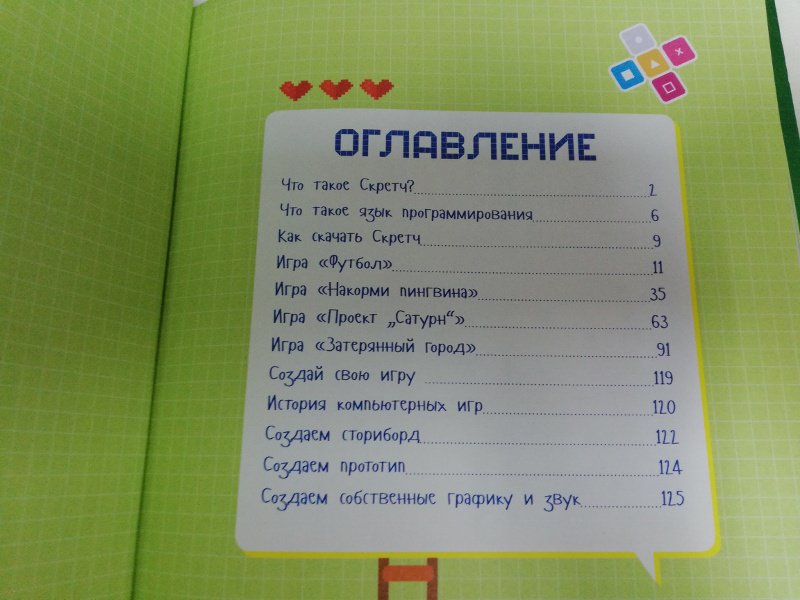 ОГЛАВЛЕНИЕ
Что такое Скретч? 2
Что такое язык программирования 6
Как скачать Скретч 9
Игра «Футбол» 11
Игра «Накорми пингвина» 35
Игра «Проект „Сатурн“» 63
Игра «Затерянный город» 91
Создай свою игру 119
История компьютерных игр 120
Создаем сториборд 122
Создаем прототип 124
Создаем собственные графику и звук 125